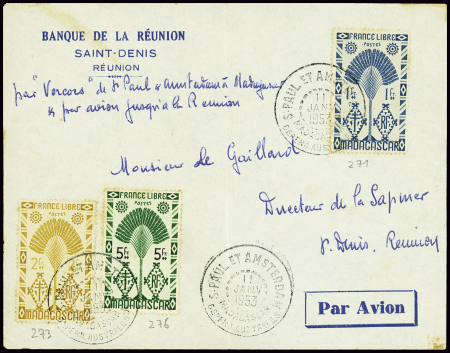 BANQUE DE LA RÉUNION
SAINT-DENIS
RÉUNION
par "Vercors" de St Paul & Amsterdam à Madagascar
& par avion jusqu'à la Réunion
FRANCE LIBRE
POSTES
1 Fr. 1 Fr.
RF
MADAGASCAR
271
ST PAUL ET AMSTERDAM
11
JANV
1953
Monsieur de Gaillard
Directeur de la Sapmer
St Denis, Réunion
FRANCE LIBRE
POSTES
MADAGASCAR
273
FRANCE LIBRE
POSTES
5 Fr. 5 Fr.
MADAGASCAR
276
ST PAUL ET AMSTERDAM
11
JANV
1953
Par Avion